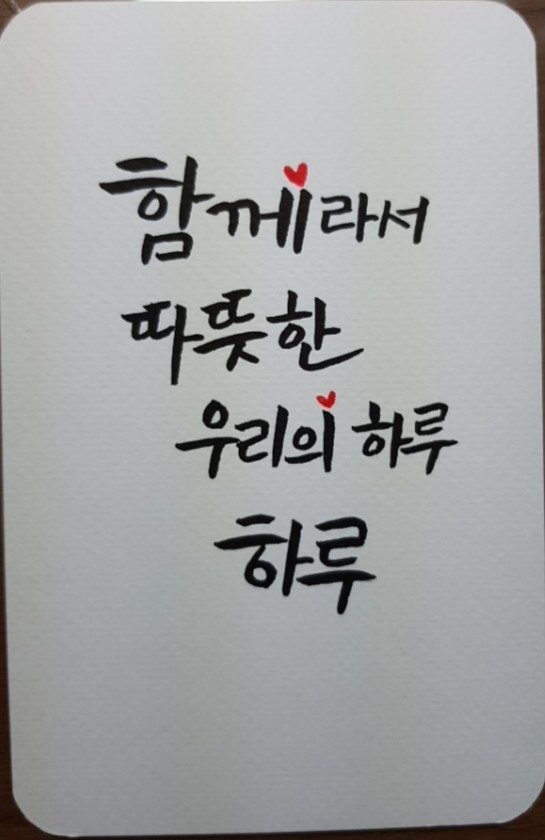 함께라서
따뜻한
우리의 하루
하루